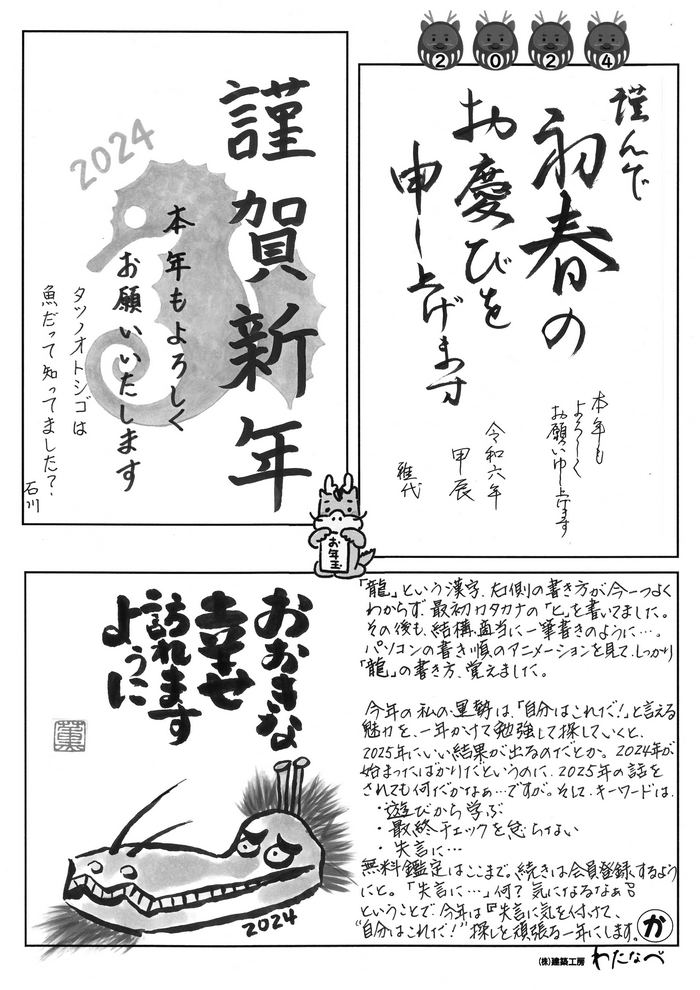 2024
謹んで
初春の
お慶びを
申し上げます
本年も
よろしく
お願い申し上げます
令和六年
甲辰
雅代
謹賀新年
2024
本年もよろしく
お願いいたします
タツノオトシゴは
魚だって知ってました?
石川
お年玉
おおきな
幸せ
訪れます
ように
薫
2024
「龍」という漢字、右側の書き方が今一つよく
わからず、最初カタカナの「ヒ」を書いてました。
その後も、結構適当に一筆書きのように…。
パソコンの書き順のアニメーションを見て、しっかり
「龍」の書き方、覚えました。
今年の私の運勢は、「自分はこれだ!」と言える
魅力を、一年かけて勉強して探していくと、
2025年にいい結果が出るのだとか。2024年が
始まったばかりだというのに、2025年の話を
されても何だかなぁ…ですが。そして、キーワードは、
・遊びから学ぶ
・最終チェックを怠らない
・失言に…
無料鑑定はここまで。続きは会員登録するよう
にと。「失言に…」何?気になるなぁ。
ということで、今年は『失言に気を付けて、
"自分はこれだ!"探しを頑張る一年にします。
か
(株)建築工房 わたなべ